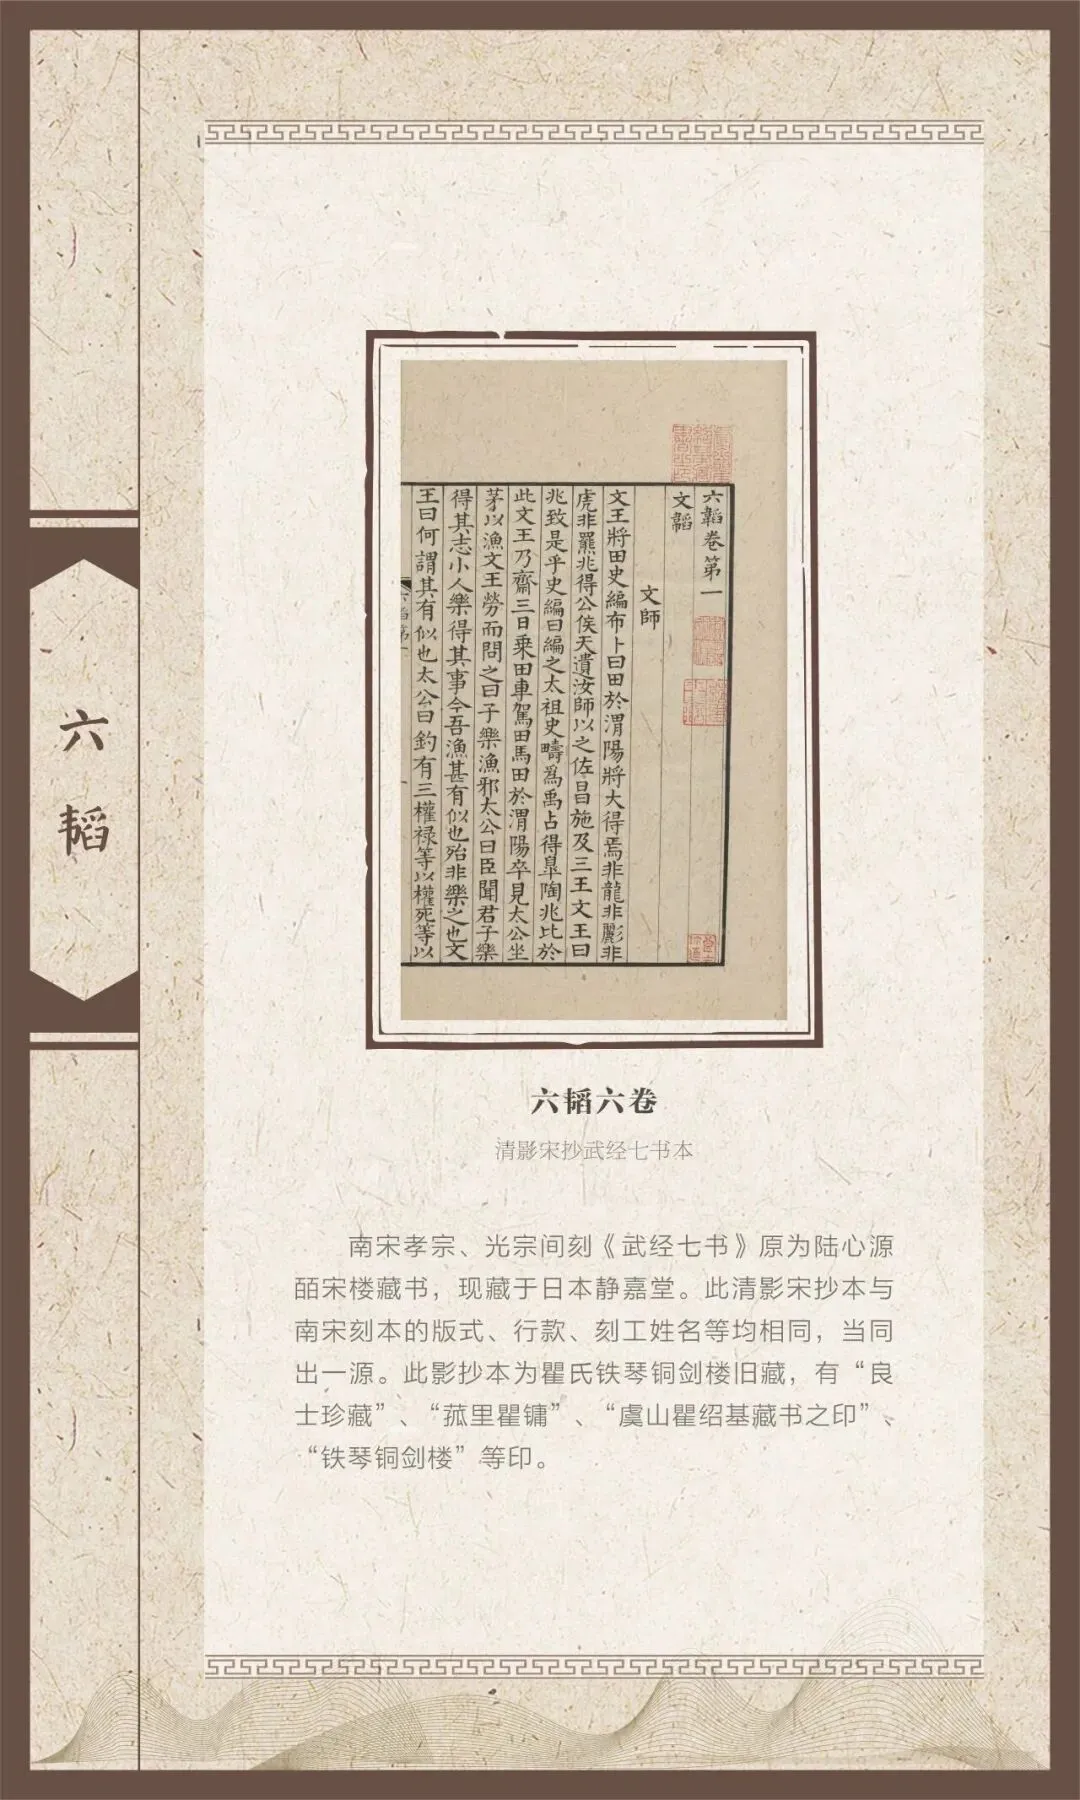 六韬
六韜卷第一
文韜
文師
文王將田史編布卜曰田於渭陽將大得焉非龍非彲非
虎非羆兆得公侯天遺汝師以之佐昌施及三王文王曰
兆致是乎史編曰編之太祖史疇爲禹占得皐陶兆比於
此文王乃齋三日乘田車駕田馬田於渭陽卒見太公坐
茅以漁文王勞而問之曰子樂漁邪太公曰臣聞君子樂
得其志小人樂得其事今吾漁甚有似也殆非樂之也文
王曰何謂其有似也太公曰釣有三權禄等以權死等以
六韬六卷
清影宋抄武经七书本
南宋孝宗、光宗间刻《武经七书》原为陆心源
皕宋楼藏书，现藏于日本静嘉堂。此清影宋抄本与
南宋刻本的版式、行款、刻工姓名等均相同，当同
出一源。此影抄本为瞿氏铁琴铜剑楼旧藏，有“良
士珍藏”、“菰里瞿镛”、“虞山瞿绍基藏书之印”、
“铁琴铜剑楼”等印。